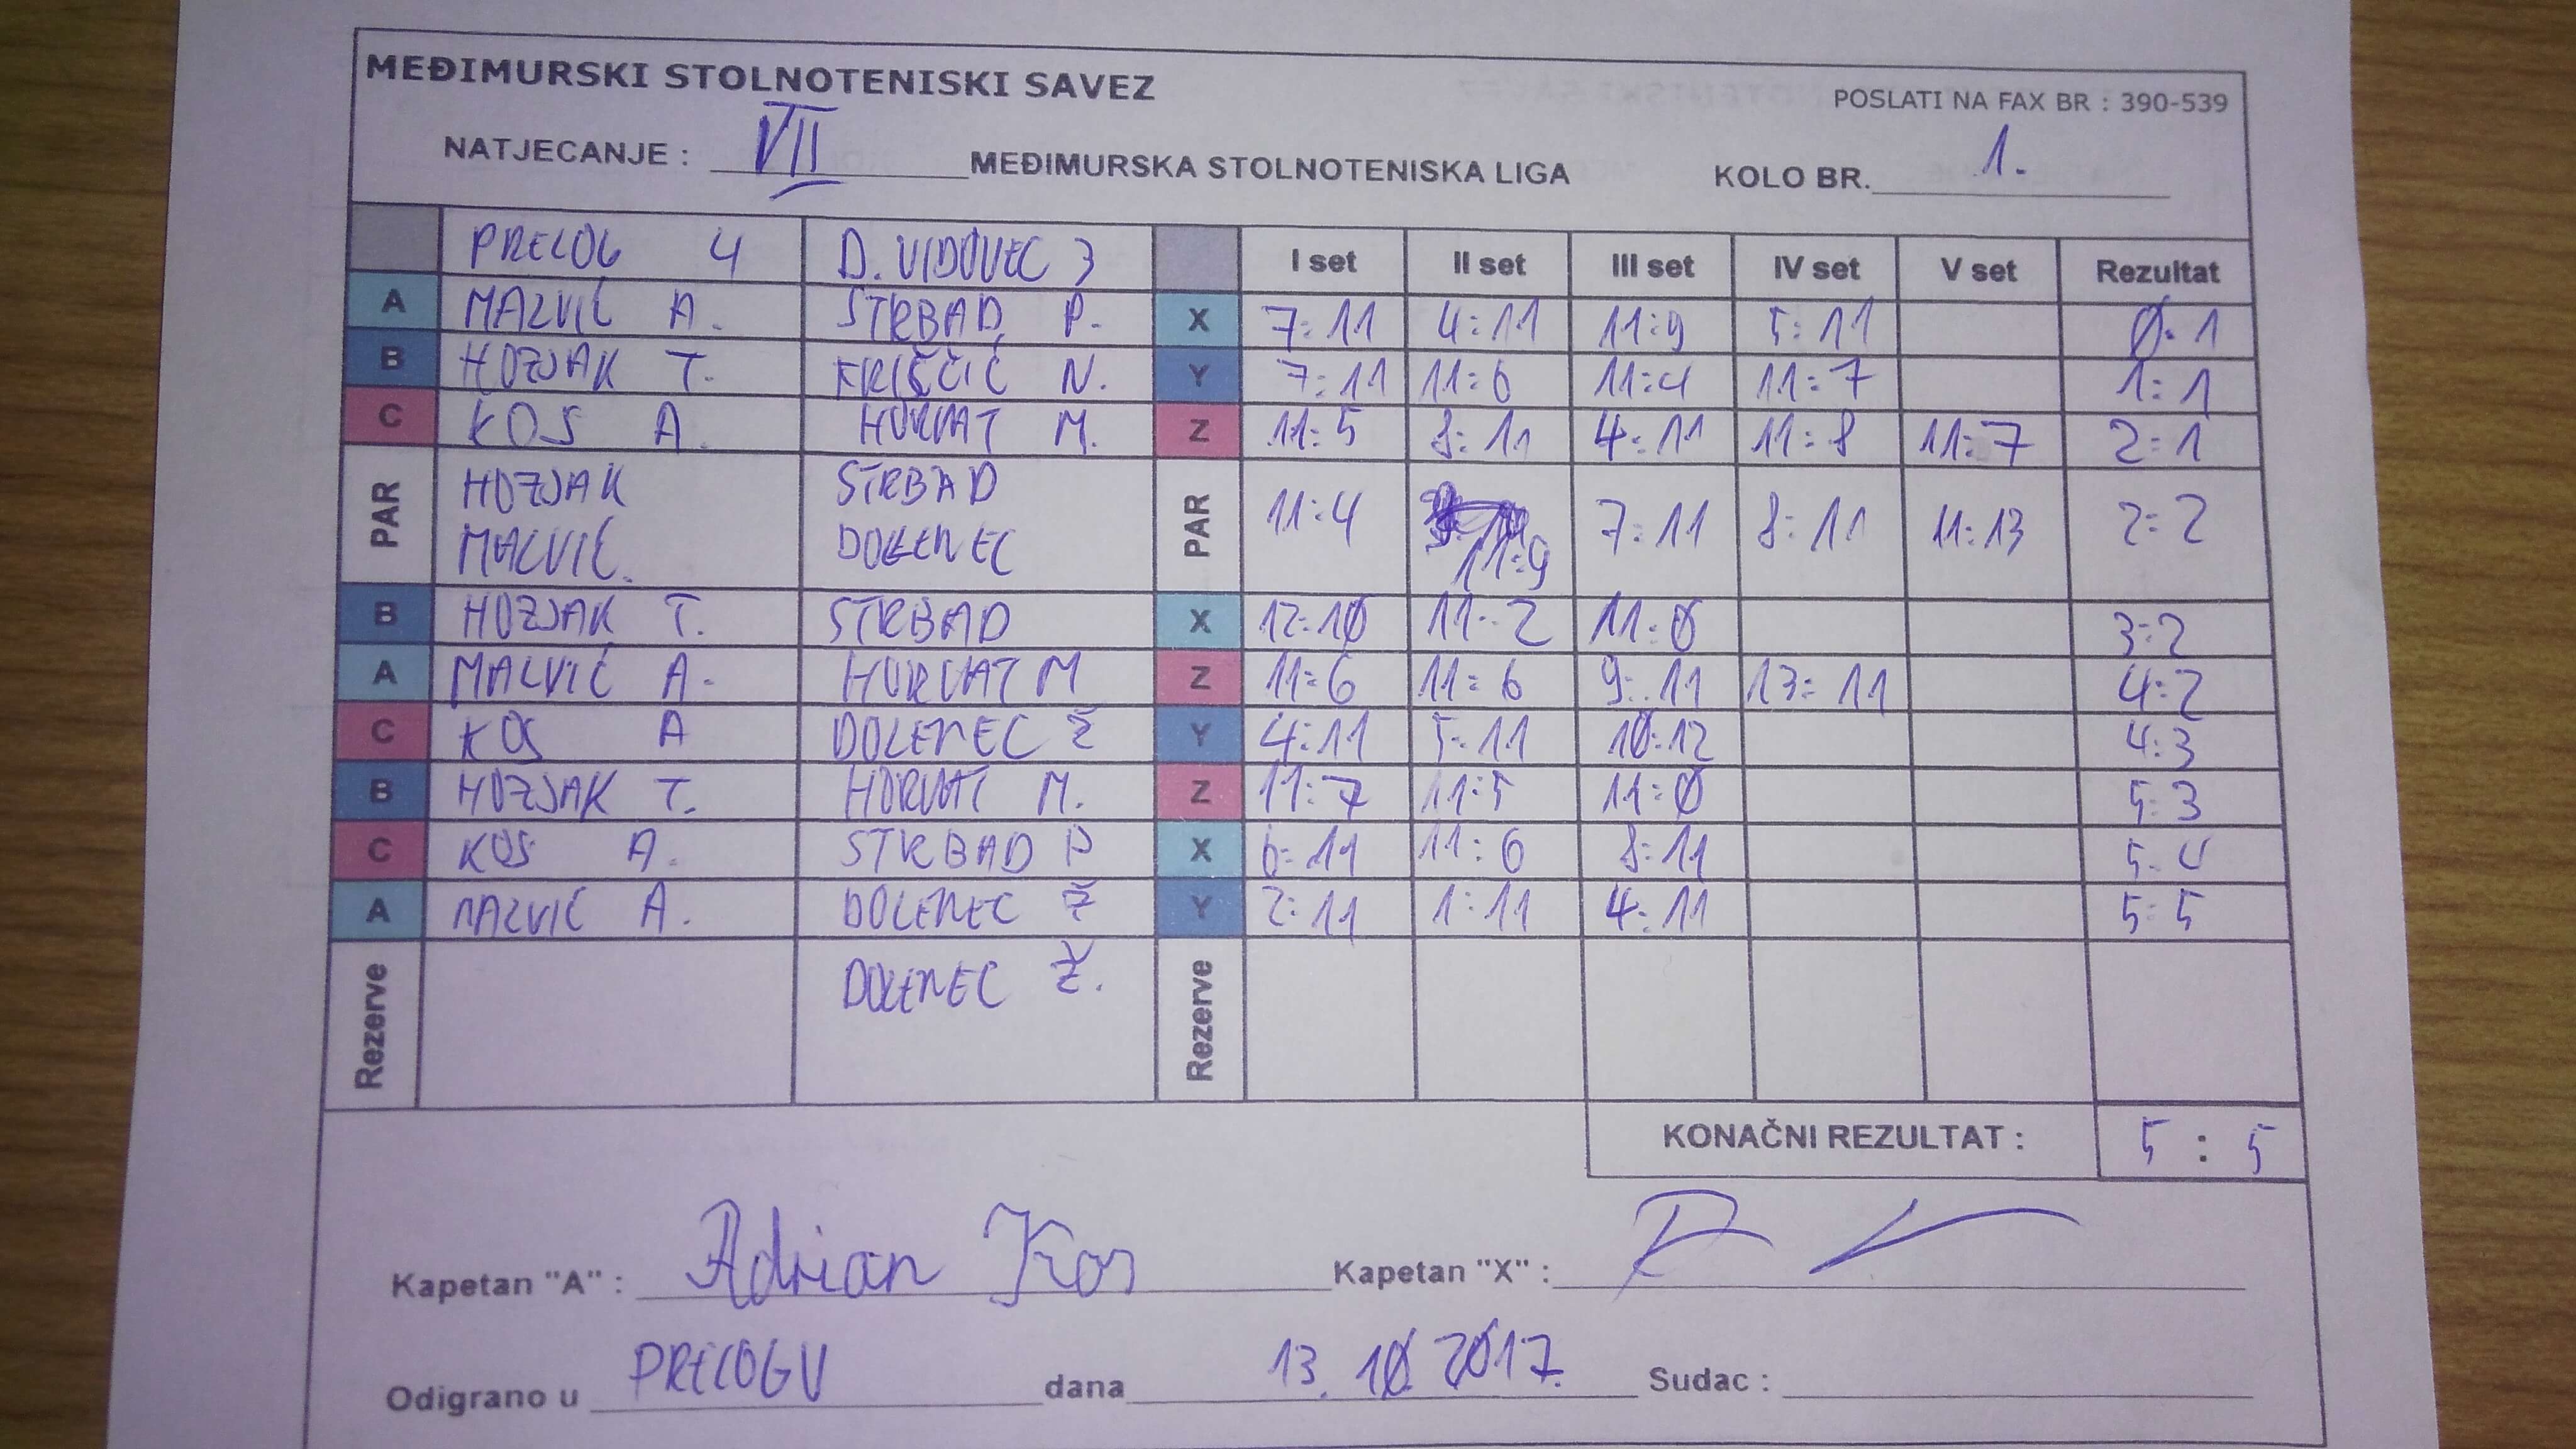 MEĐIMURSKI STOLNOTENISKI SAVEZ
POSLATI NA FAX BR : 390-539
NATJECANJE : VII MEĐIMURSKA STOLNOTENISKA LIGA KOLO BR. 1.
PRELOG 4 D. VIDOVEC 3 I set II set III set IV set V set Rezultat
A MALVIĆ A. STRBAD P. X 7:11 4:11 11:9 5:11 0:1
B HOZJAK T. N. Y 7:11 11:6 11:4 11:7 1:1
C KOS A. HORVAT M. Z 11:5 8:11 4:11 11:8 11:7 2:1
PAR HOZJAK STRBAD PAR 11:4 11:9 7:11 8:11 11:13 2:2
MALVIĆ DOLENEC
B HOZJAK T. STRBAD X 12:10 11:2 11:6 3:2
A MALVIĆ A. HORVAT M Z 11:6 11:6 9:11 13:11 4:2
C KOS A DOLENEC Ž Y 4:11 5:11 10:12 4:3
B HOZJAK T. HORVAT M. Z 11:7 11:5 11:0 5:3
C KOS A. STRBAD P X 6:11 11:6 8:11 5:4
A MALVIĆ A. DOLENEC Ž Y 2:11 1:11 4:11 5:5
Rezerve DOLENEC Ž. Rezerve
KONAČNI REZULTAT : 5 : 5
Kapetan "A" : Adrian Kos Kapetan "X" :
Odigrano u PRELOGU dana 13. 10. 2017. Sudac :